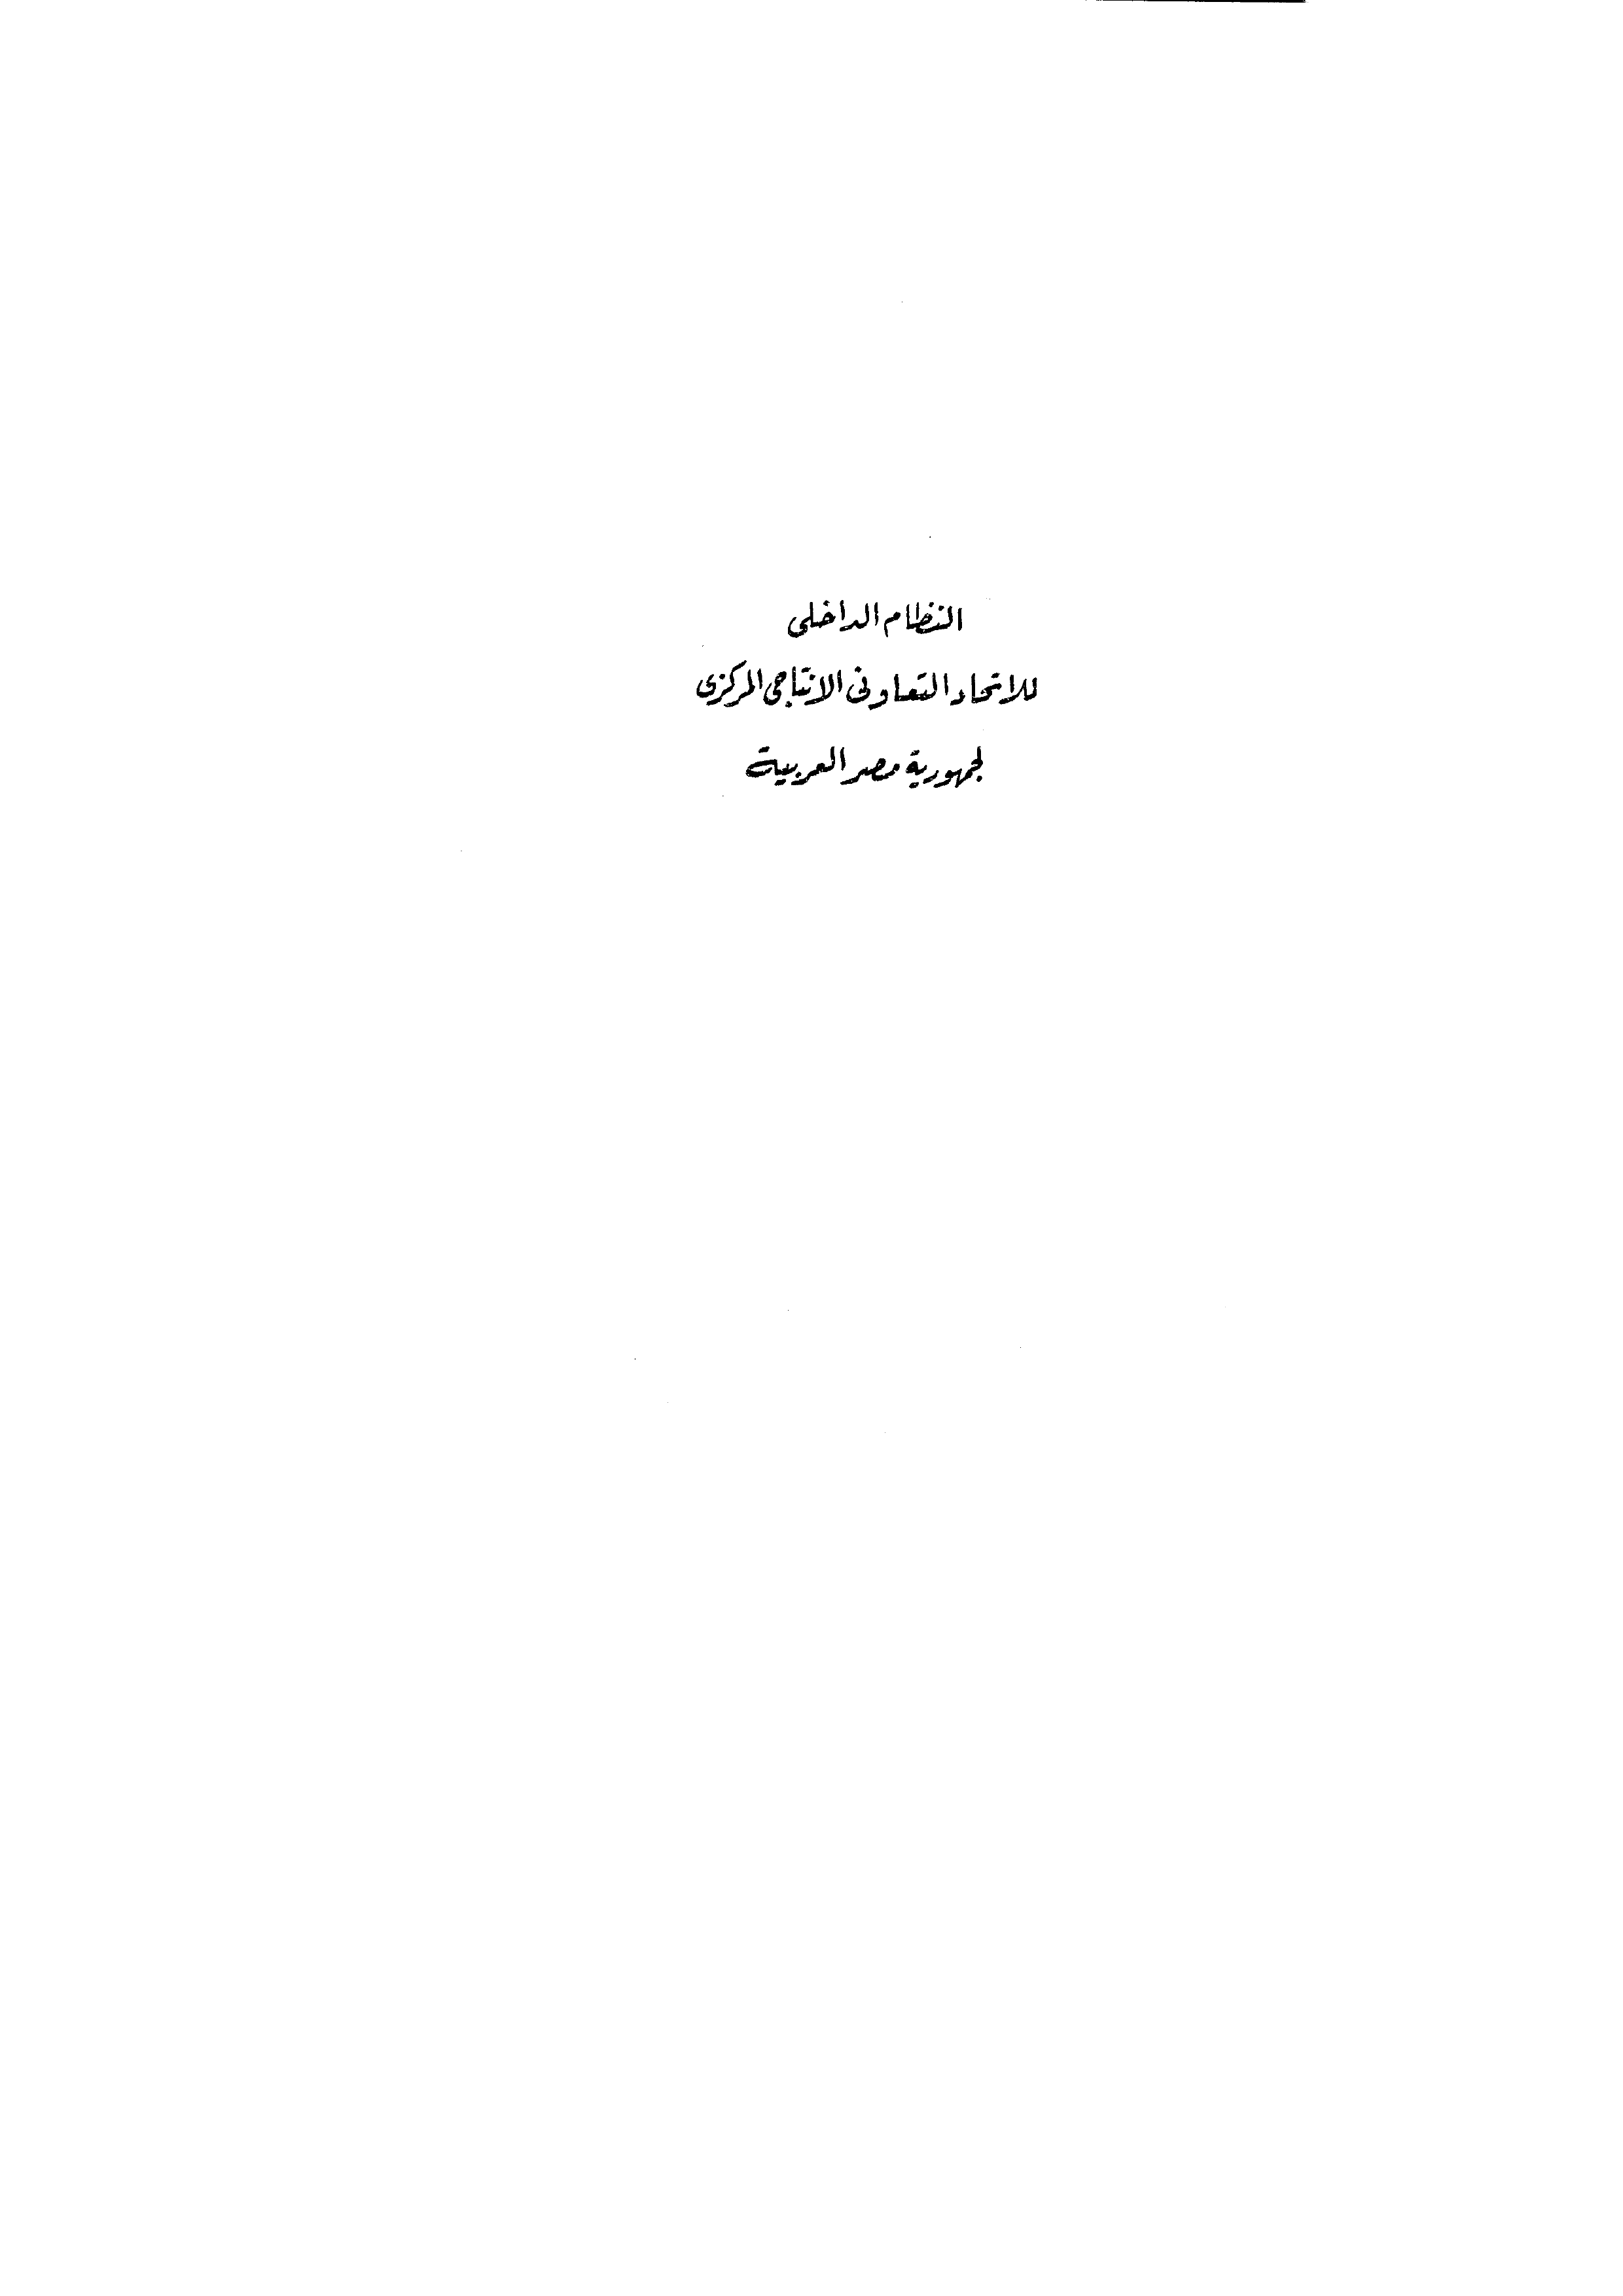 النظام الداخلى
للاتحاد التعاونى الانتاجى المركزى
لجمهورية مصر العربية